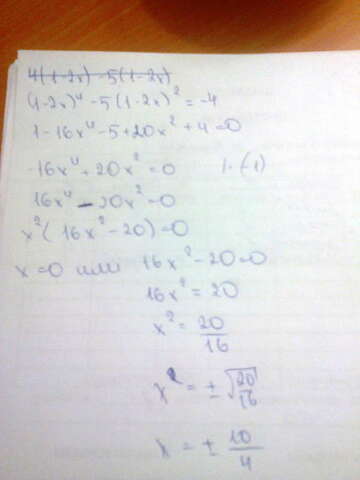 4(1-2x) - 5(1-2x)
(1-2x)⁴ - 5(1-2x)² = -4
1 - 16x⁴ - 5 + 20x² + 4 = 0
-16x⁴ + 20x² = 0 | · (-1)
16x⁴ - 20x² = 0
x²(16x² - 20) = 0
x = 0 или 16x² - 20 = 0
16x² = 20
x² = 20/16
x² = ±√20/16
x = ± 10/4